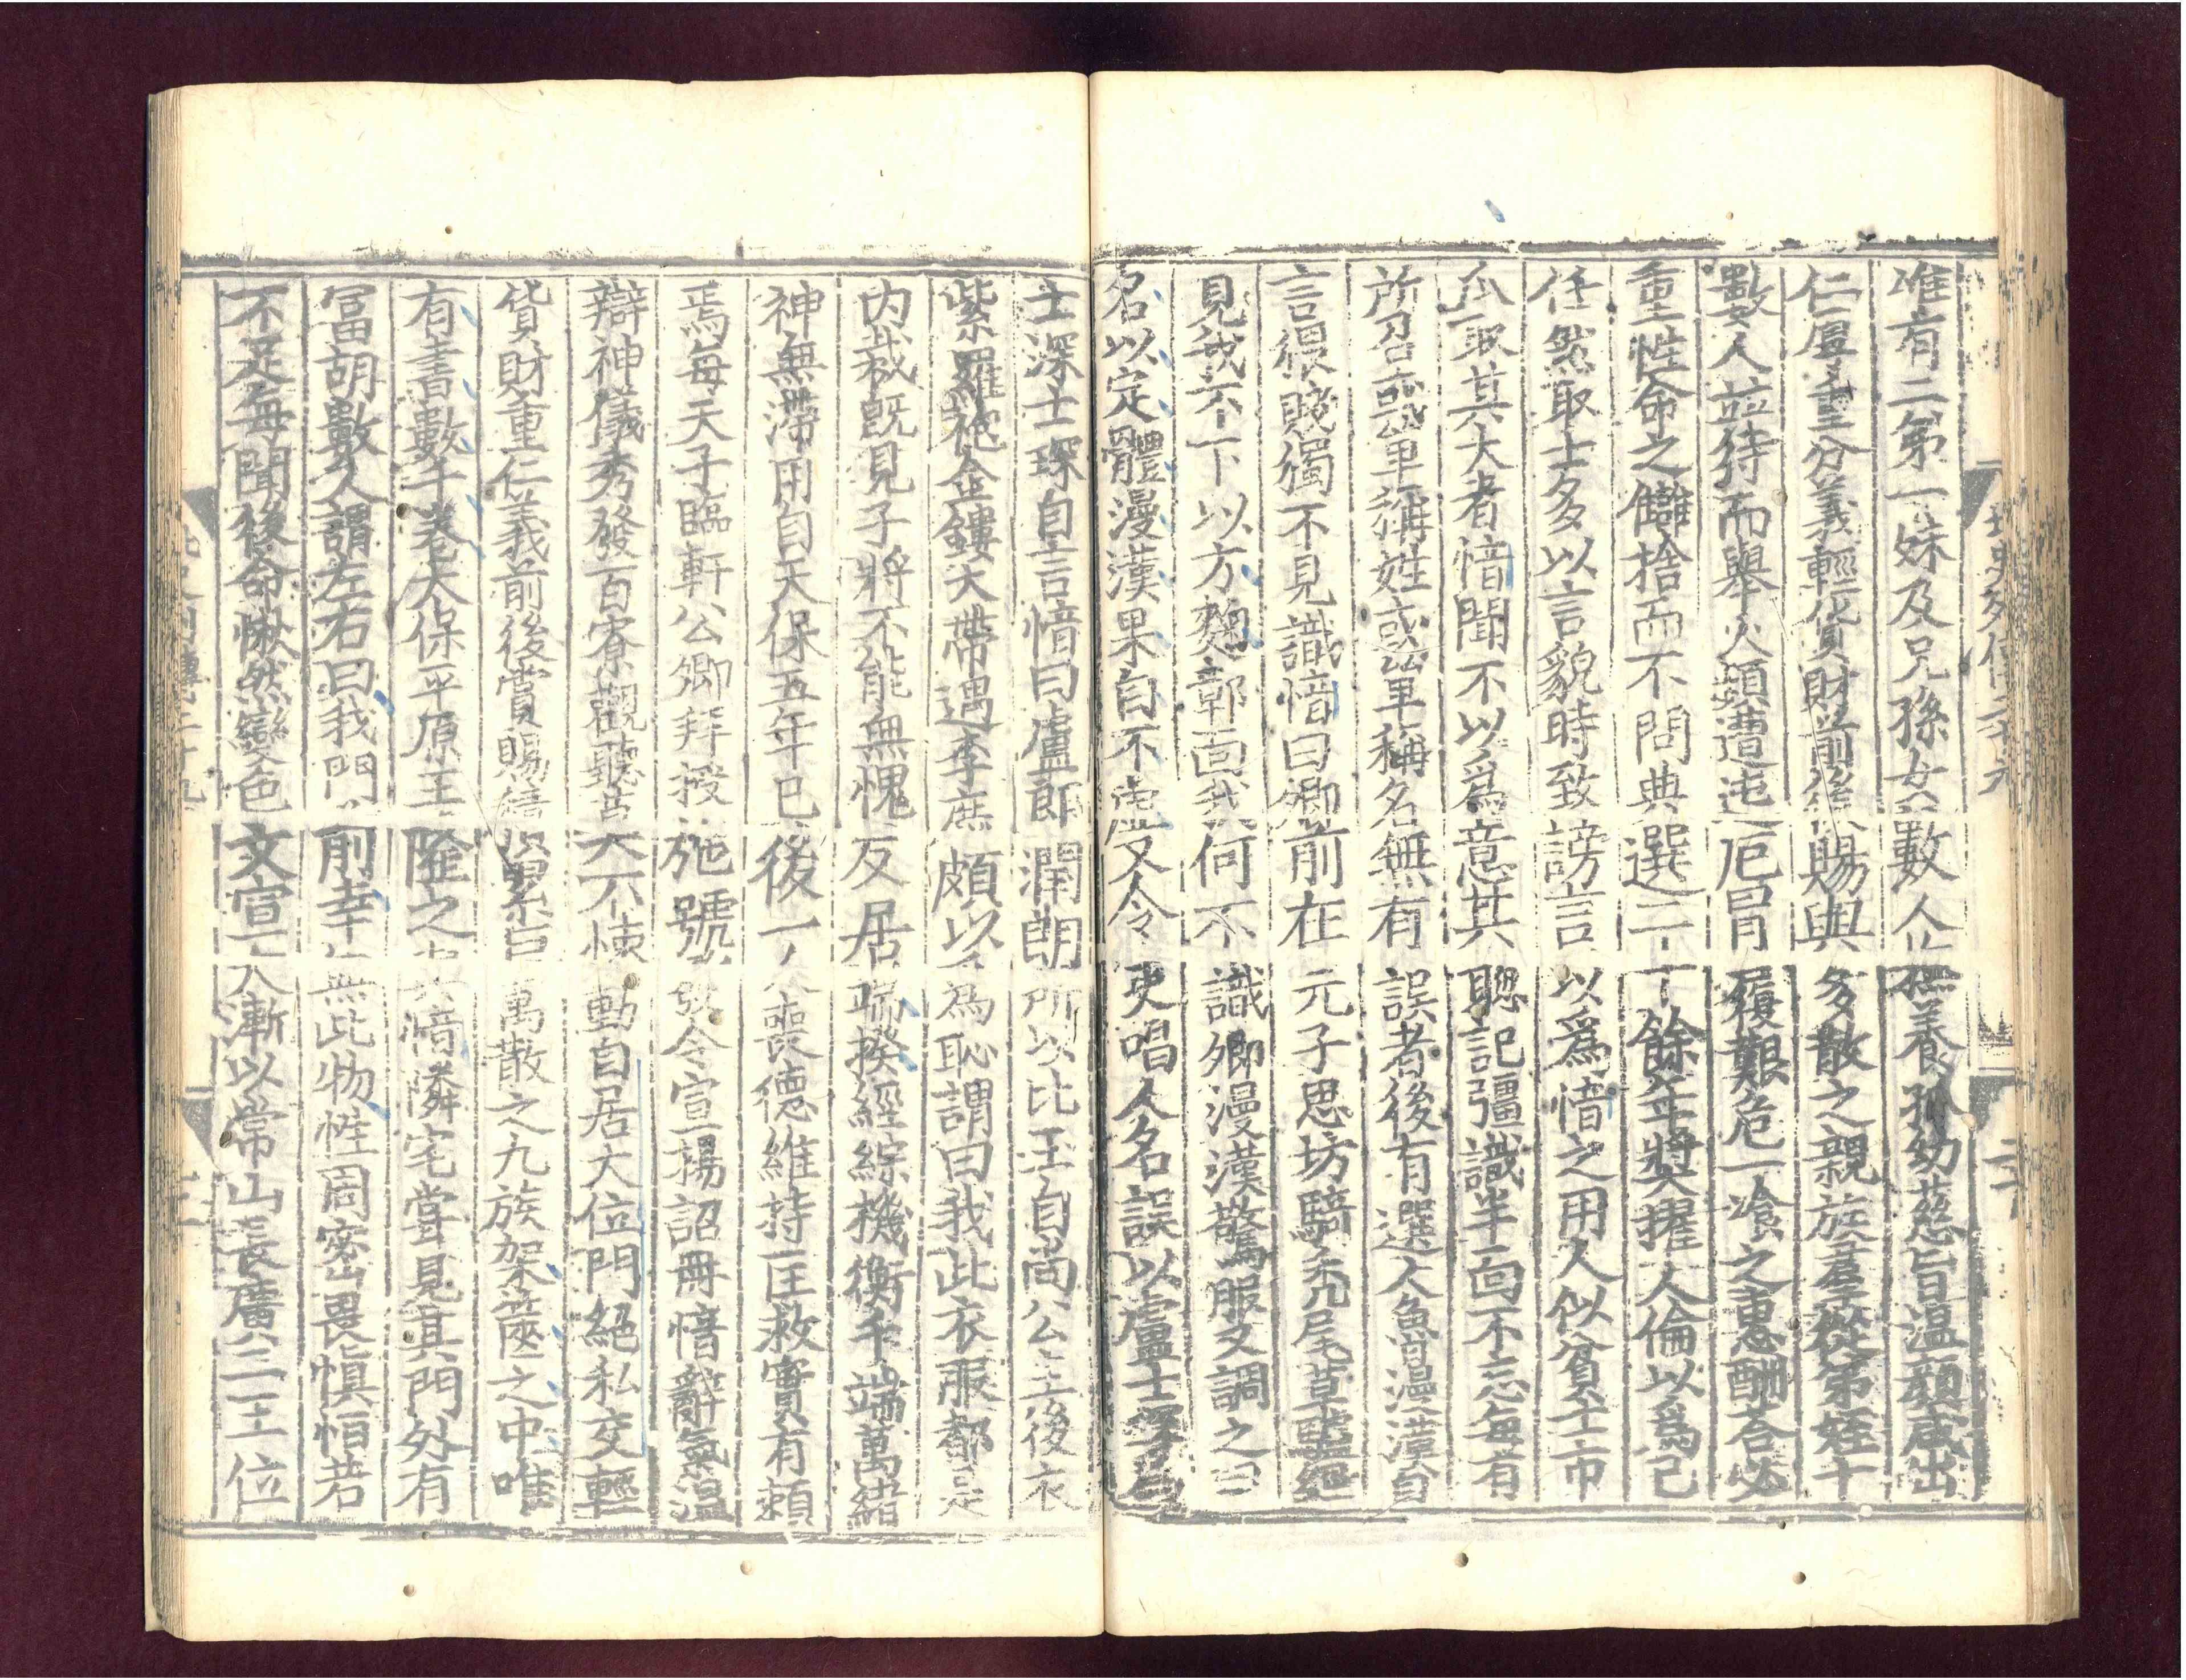 唯有二弟一妹及兄孫女數人撫養孤幼慈旨温顏咸出
仁厚重分義輕貨財前後賜與多散之親族羣從弟姪十
數人並待而舉火頻遭迍厄冒履艱危一飡之惠酬荅必
重性命之讎捨而不問典選二十餘年奬擢人倫以爲己
任然取士多以言貌時致謗言以爲愔之用人似貧士市
瓜取其大者愔聞不以爲意其聰記彊識半面不忘每有
所召或單稱姓或單稱名無有誤者後有選人魯漫漢自
言猥賤獨不見識愔曰卿前在元子思坊騎秃尾草驢經
見我不下以方麴鄣面我何不識卿漫漢驚服又調之曰
名以定體漫漢果自不虚又令吏唱人名誤以盧士深爲
士琛士琛自言愔曰盧郎潤朗所以比玉自尚公主後衣
紫羅袍金鏤大帶遇李庶頗以爲恥謂曰我此衣服都是
内裁旣見子將不能無愧反居端揆經綜機衡千端萬緒
神無滯用自天保五年已後一人喪德維持匡救實有賴
焉每天子臨軒公卿拜授施號發令宣揚詔冊愔辭氣温
辯神儀秀發百寮觀聽莫不悚動自居大位門絶私交輕
貨財重仁義前後賞賜積累巨萬散之九族架篋之中唯
有書數千卷太保平原王隆之與愔隣宅嘗見其門外有
富胡數人謂左右曰我門前幸無此物性周密畏愼恒若
不足每聞後命愀然變色文宣大漸以常山長廣二王位